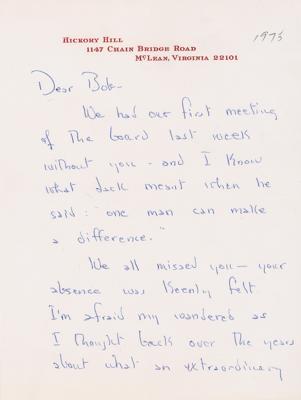 1975
HICKORY HILL
1147 CHAIN BRIDGE ROAD
MCLEAN, VIRGINIA 22101
Dear Bob-
We had our first meeting
of the board last week
without you - and I know
what Jack meant when he
said: "one man can make
a difference."
We all missed you — your
absence was keenly felt
I'm afraid my wandered as
I thought back over the years
about what an extraordinary